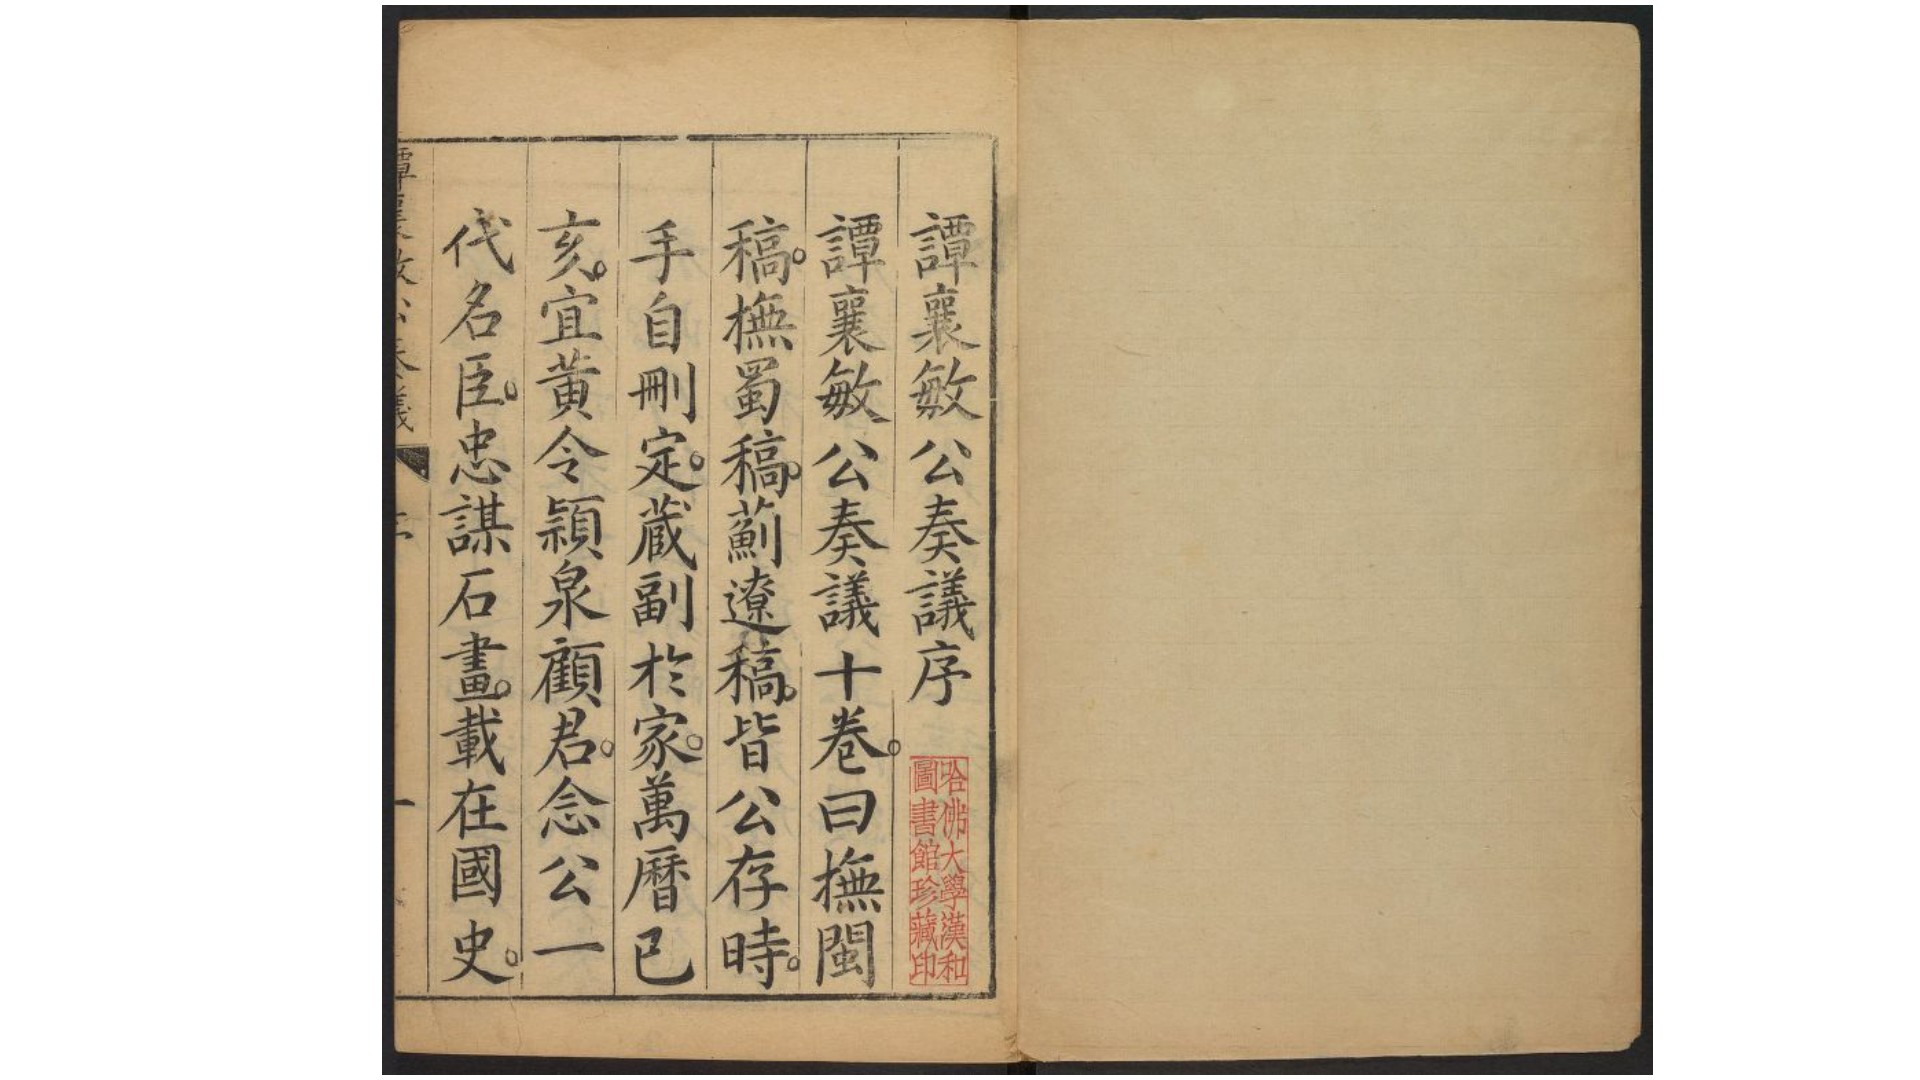 譚襄敏公奏議序
哈佛大學漢和
圖書館珍藏印
譚襄敏公奏議十卷。曰撫閩
稿。撫蜀稿。薊遼稿。皆公存時。
手自刪定。蔵副於家。萬曆已
亥。宜黄令頴泉顧君。念公一
代名臣。忠謀石畫。載在國史。
譚襄敏公奏議
序
一